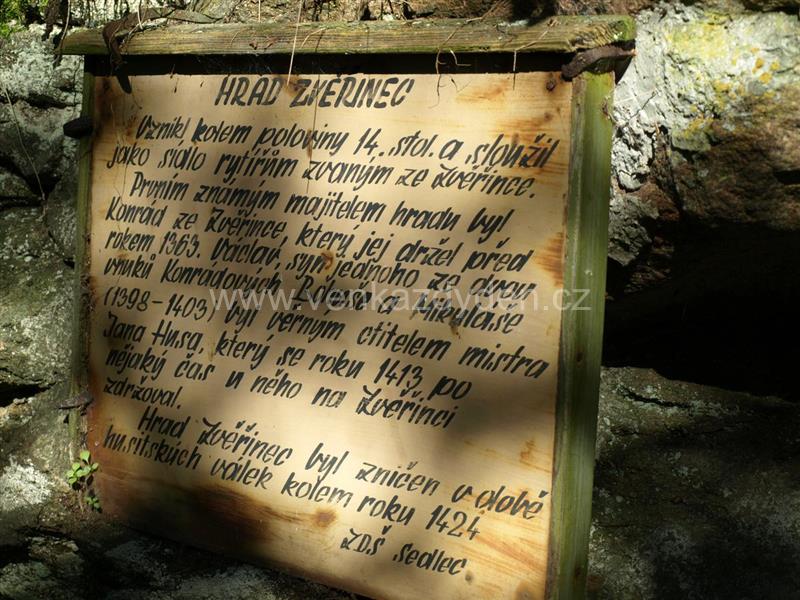 HRAD ZVĚŘINEC
Vznikl kolem poloviny 14. stol. a sloužil
jako sídlo rytířům zvaným ze Zvěřince.
Prvním známým majitelem hradu byl
Konrád ze Zvěřince, který jej držel před
rokem 1363. Václav, syn jednoho ze dvou
vnuků Konrádových a Mikuláše
(1398-1403) byl věrným ctitelem mistra
Jana Husa, který se roku 1413 po
nějaký čas u něho na Zvěřinci
zdržoval.
Hrad Zvěřinec byl zničen v době
husitských válek kolem roku 1424
ZDŠ Sedlec
www.venkazdyden.cz